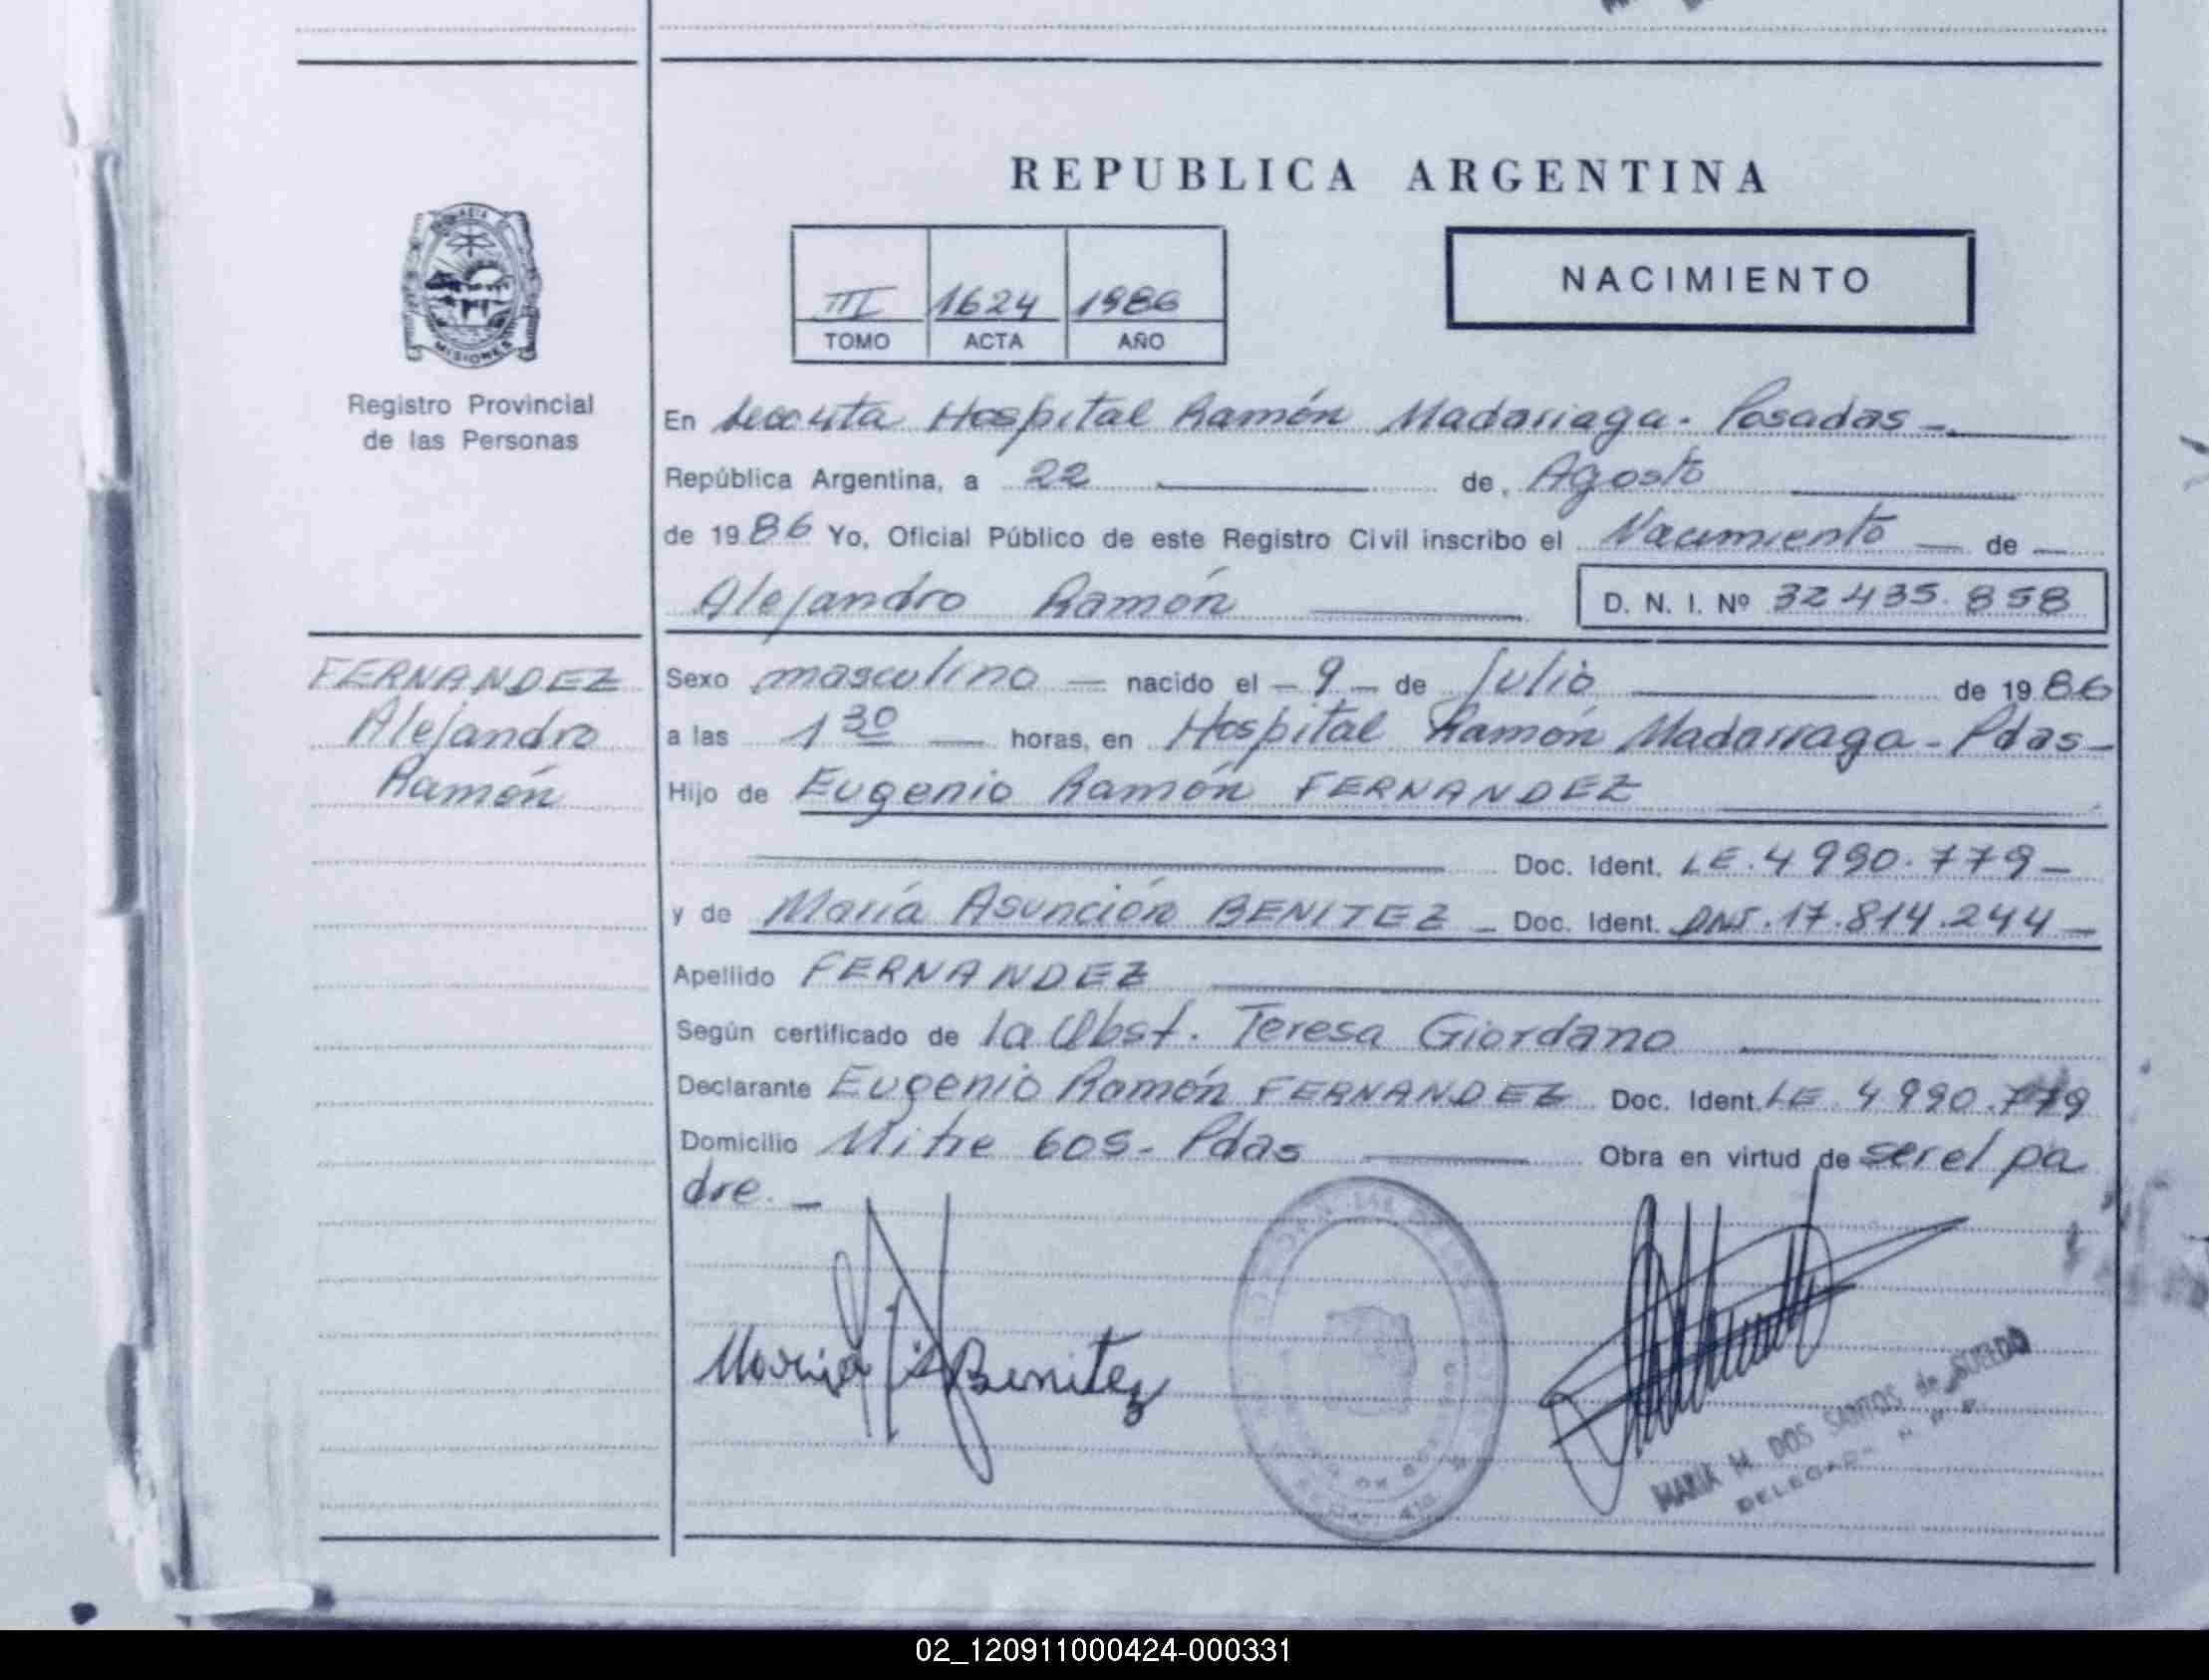 REPUBLICA ARGENTINA
MISIONES
Registro Provincial
de las Personas
III 1624 1986
TOMO ACTA AÑO
NACIMIENTO
En Hospital Ramón Madariaga - Posadas -
República Argentina, a 22 de Agosto
de 1986 Yo, Oficial Público de este Registro Civil inscribo el Nacimiento — de —
Alejandro Ramón D. N. I. Nº 32.435.858
FERNANDEZ
Alejandro
Ramón
Sexo masculino — nacido el - 9 - de Julio de 1986
a las 1 30 — horas, en Hospital Ramón Madariaga - Pdas -
Hijo de Eugenio Ramón FERNANDEZ
Doc. Ident. LE. 4 990.779 -
y de María Asunción BENITEZ - Doc. Ident. DNI. 17.814.244 -
Apellido FERNANDEZ
Según certificado de la Obst. Teresa Giordano
Declarante Eugenio Ramón FERNANDEZ Doc. Ident. LE 4 990.779
Domicilio Mitre 605 - Pdas Obra en virtud de ser el pa
dre. -
Maria A Benitez
MARIA M. DOS SANTOS de SUELDO
02_120911000424-000331